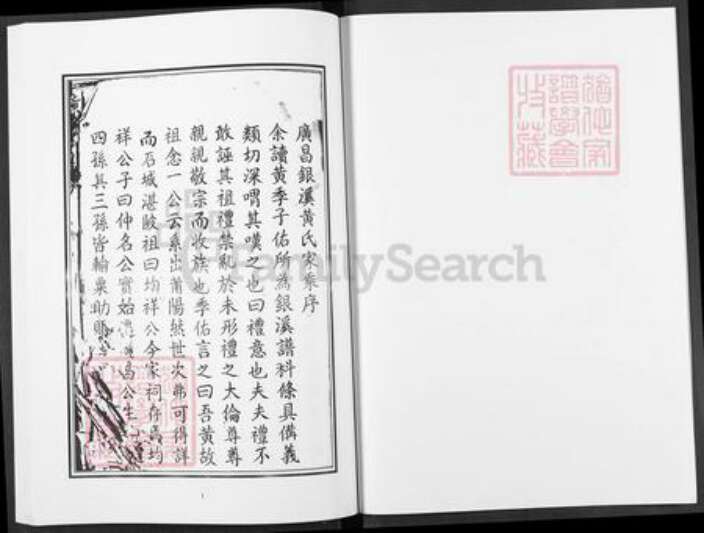 廣昌銀溪黃氏家乘序
余讀黃季子佑所為銀溪譜科條具備義
類切深喟其嘆之也曰禮意也夫夫禮不
敢誣其祖禮禁亂於未形禮之大倫尊尊
親親敬宗而收族也季佑言之曰吾黃故
祖念一公云系出莆陽然世次弗可得詳
而石城湛陂祖曰均祥公今家祠存焉均
祥公子曰仲名公實始 昌公生
四孫其三孫皆輸粟助賑
1
FamilySearch
譜學會
收藏